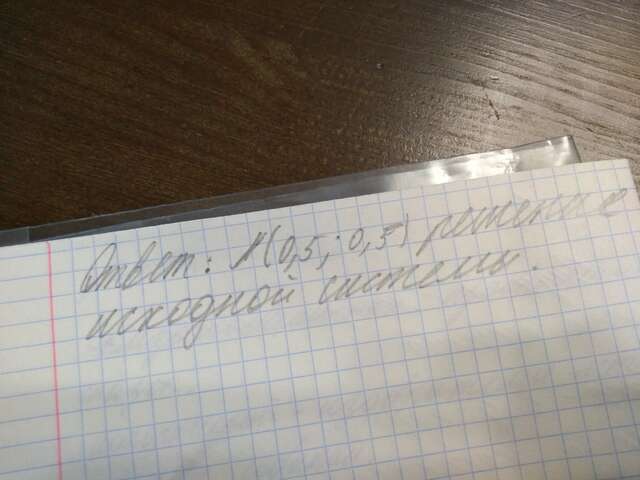 Ответ: N(0,5; 0,5) решение
исходной системы.